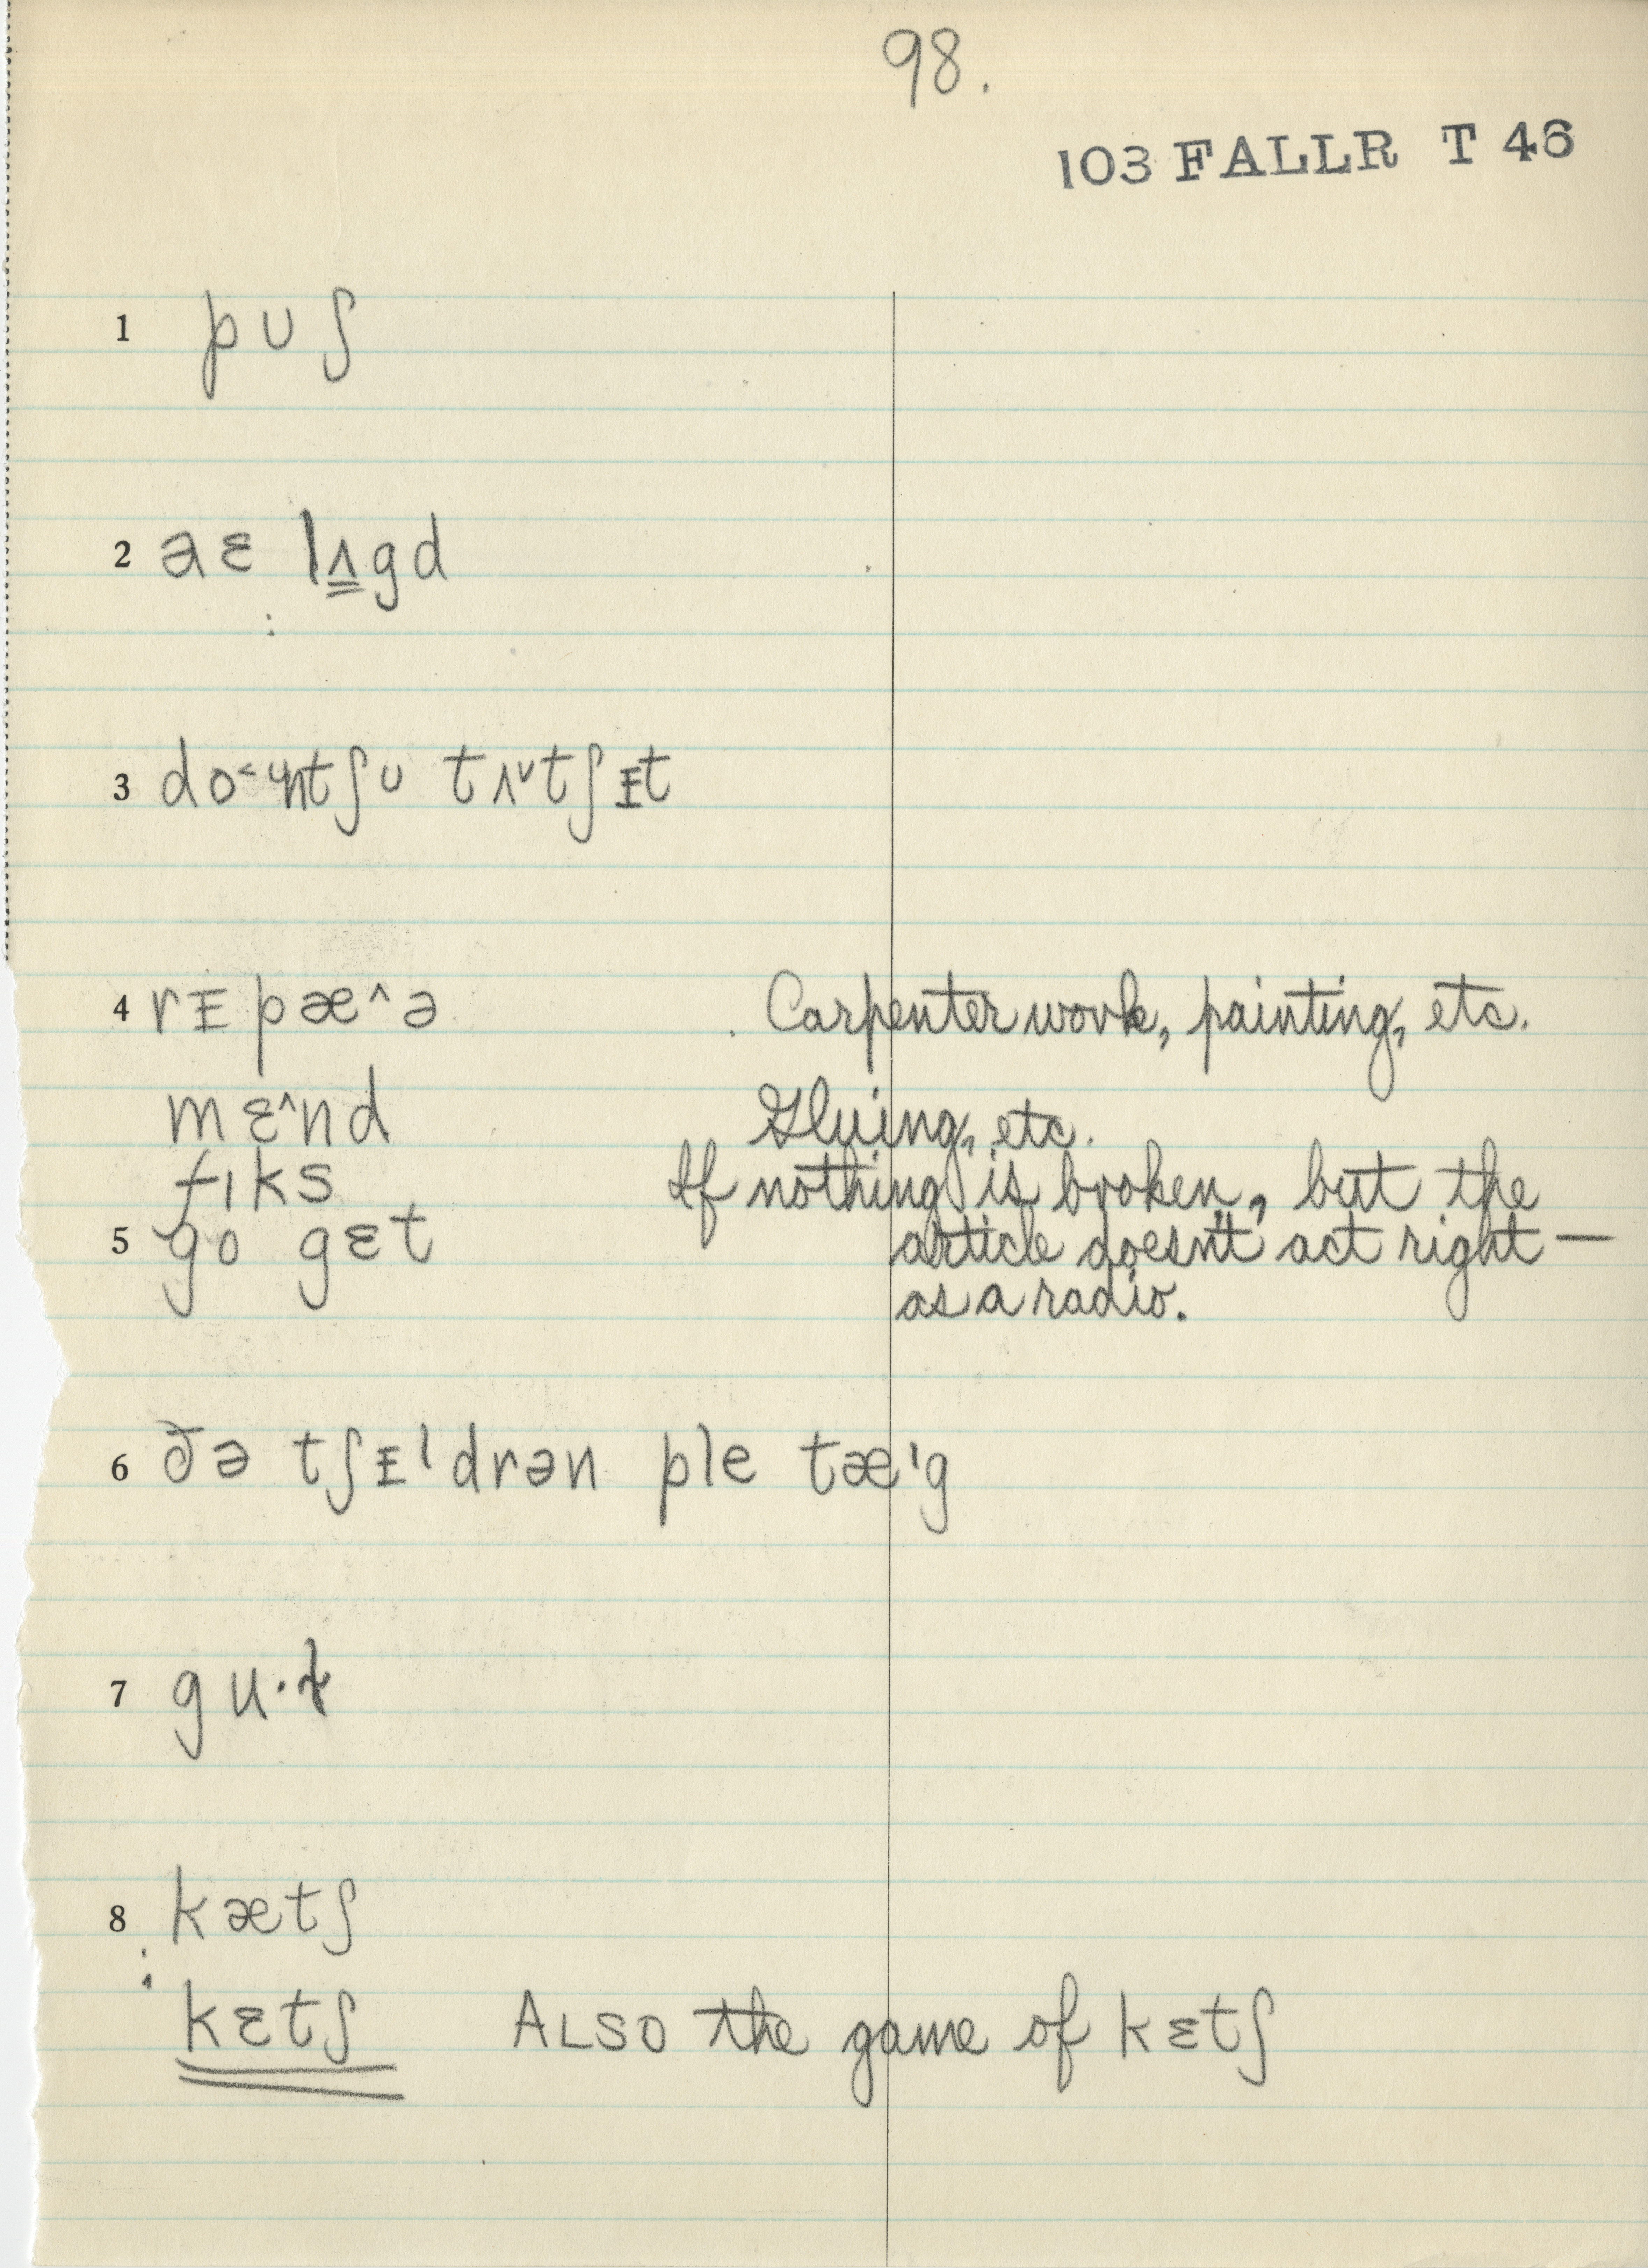 98.
103 FALLR T 46
1 pᴜʃ
2 aɛ lʌgd
:
3 do˂ᶙntʃᴜ tʌ˅tʃɪt
4 rɪpæ^ə Carpenter work, painting, etc.
mɛ^nd Gluing, etc.
fɪks If nothing is broken, but the
5 go gɛt article doesn't act right —
as a radio.
6 ðə tʃɪldrən ple tæ'g
7 gu·ɫ
8 kætʃ
:
kɛtʃ ALSO the game of kɛtʃ